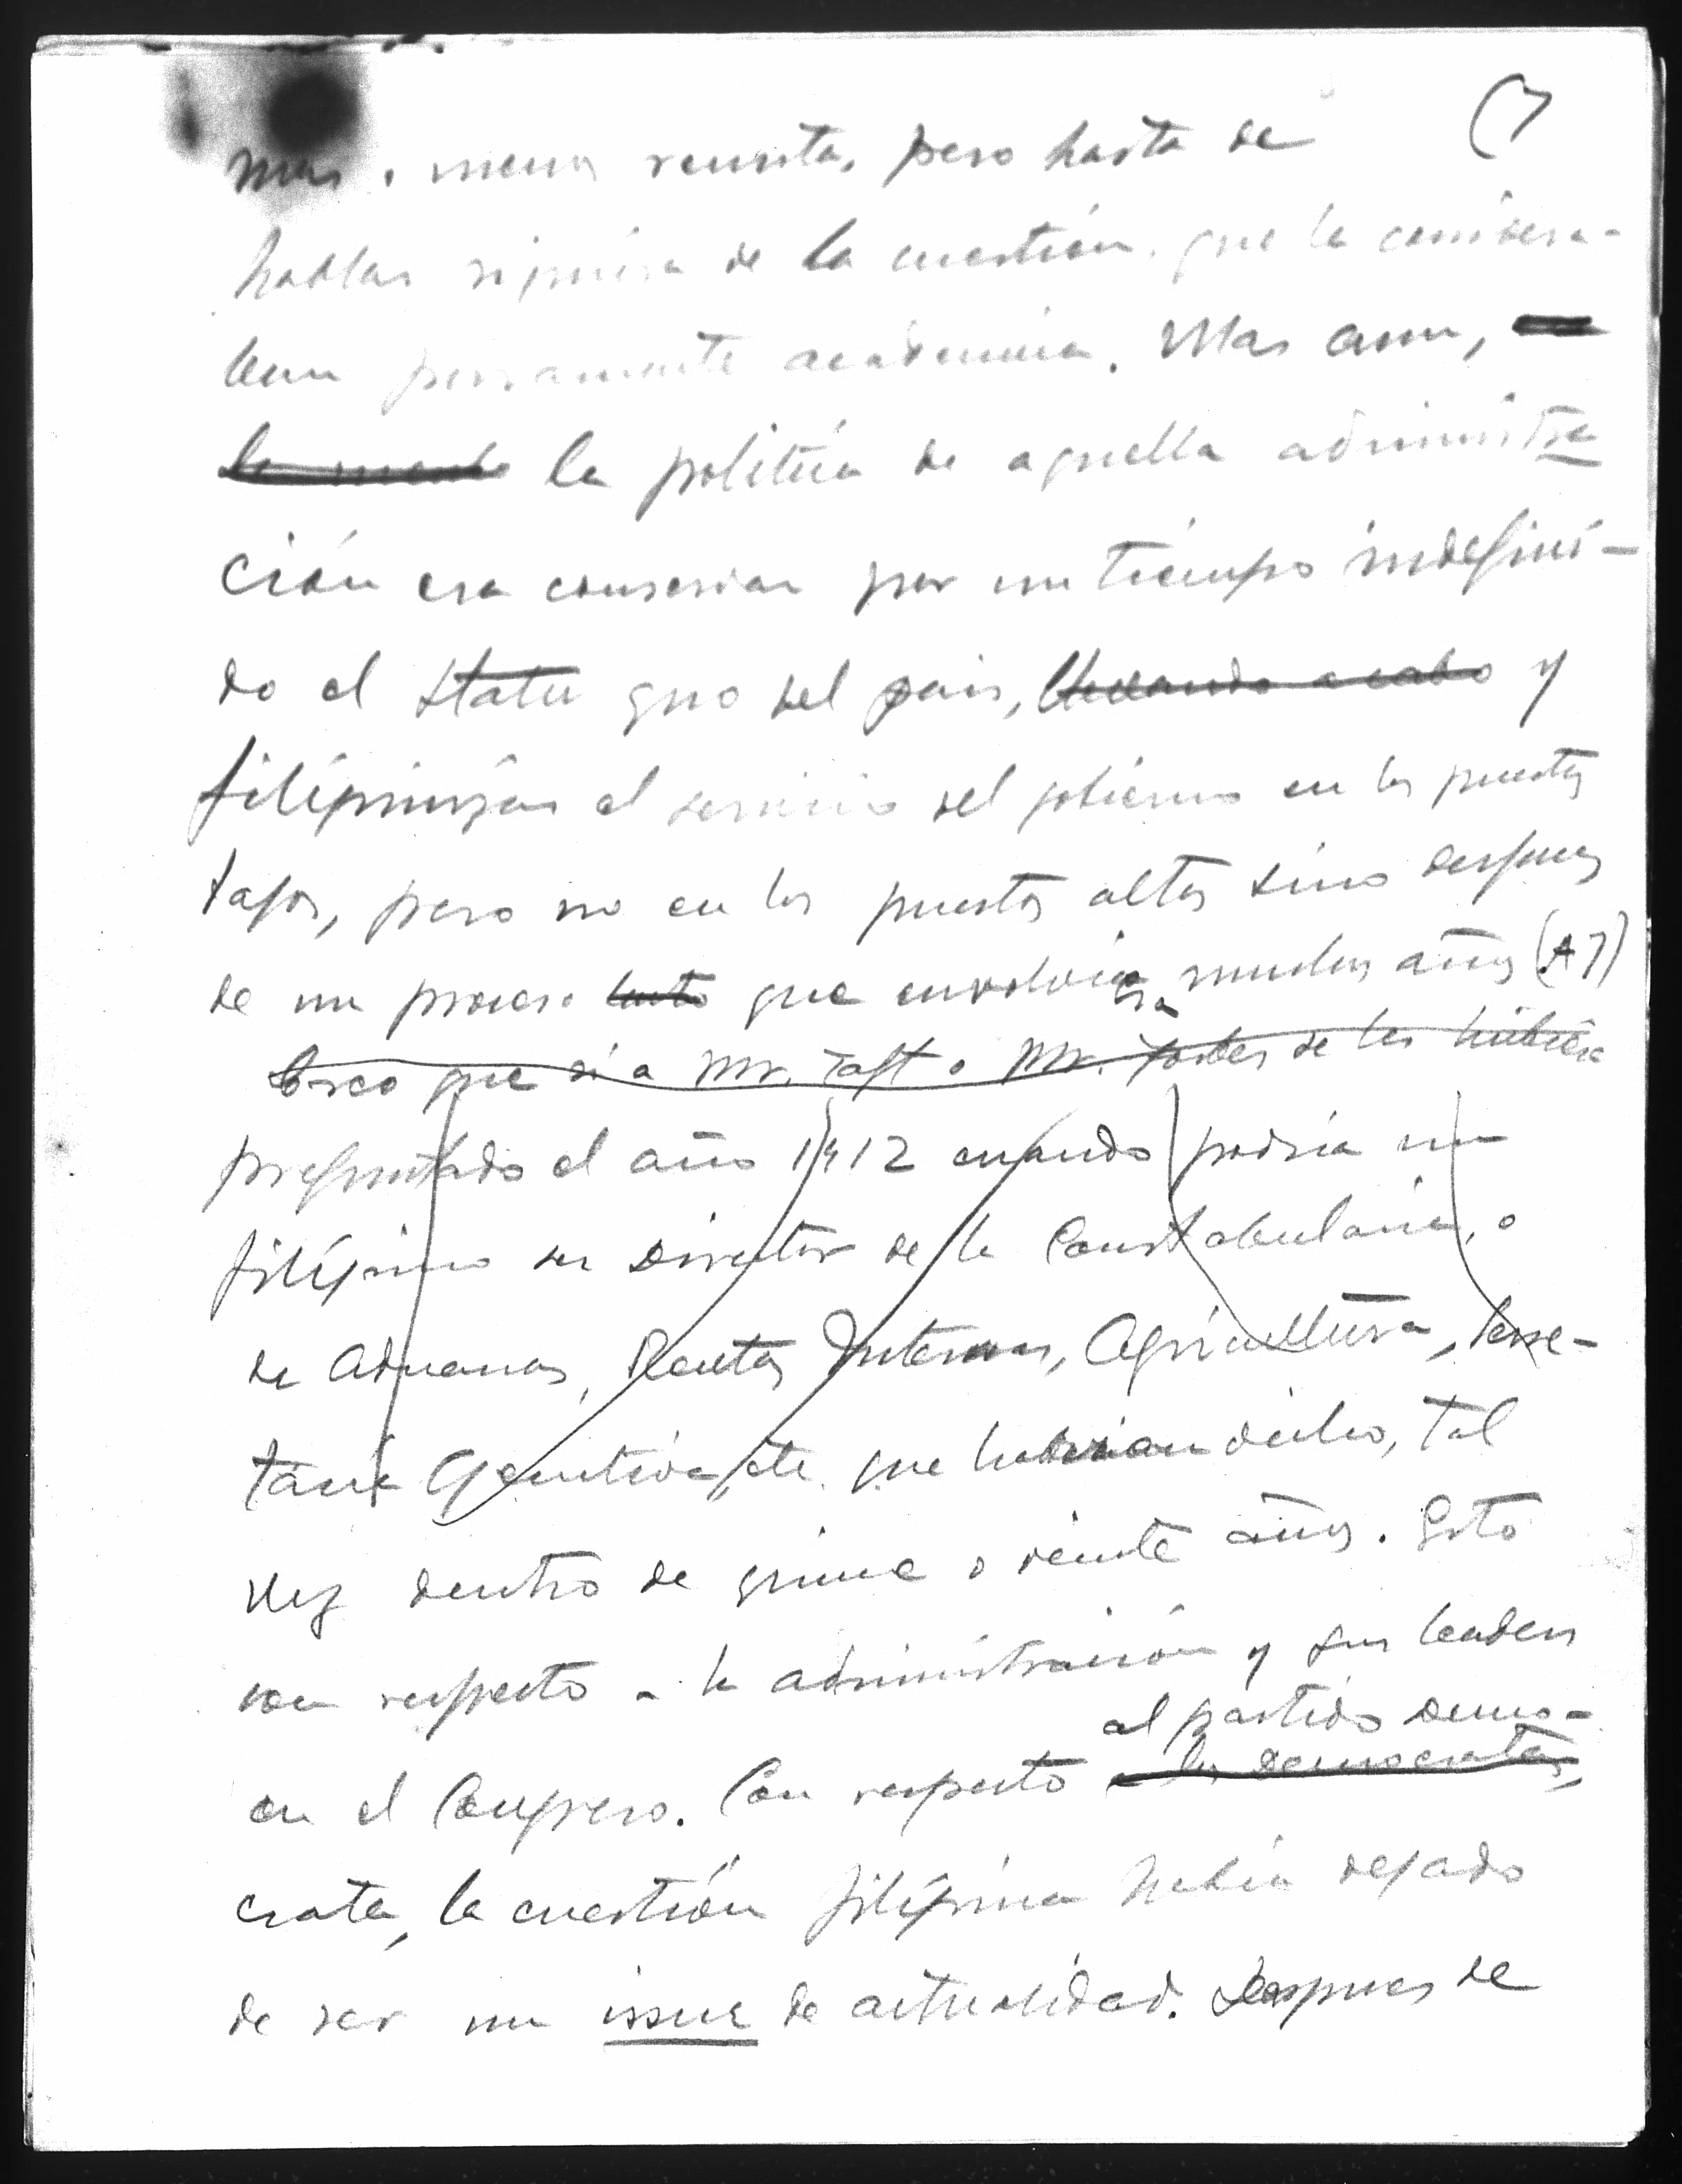 (7
mas o menos remota, pero hasta de
hablar siquiera de la cuestión que la considera-
ban puramente académica. Mas aun,
la política de aquella administra
ción era conservar por un tiempo indefini-
do el statu quo del pais, llevando a cabo y
filipinizar el servicio del gobierno en los puestos
bajos, pero no en los puestos altos sino despues
de un proceso lento que envolvia muchos años (A7)
Creo que si a Mr. Taft o Mr. Forbes se les hubiera
preguntado el año 1912 cuando podria un
filipino ser Director de la Constabularia, o
de Aduanas, Rentas Internas, Agricultura, Secre-
taria Ejecutiva, etc. que habrian dicho, tal
vez dentro de quince o veinte años. Esto
con respecto a la administración y sus leaders
al partido demo-
en el Congreso. Con respecto a los democratas,
crata, la cuestión filipina habia dejado
de ser un issue de actualidad. Despues de